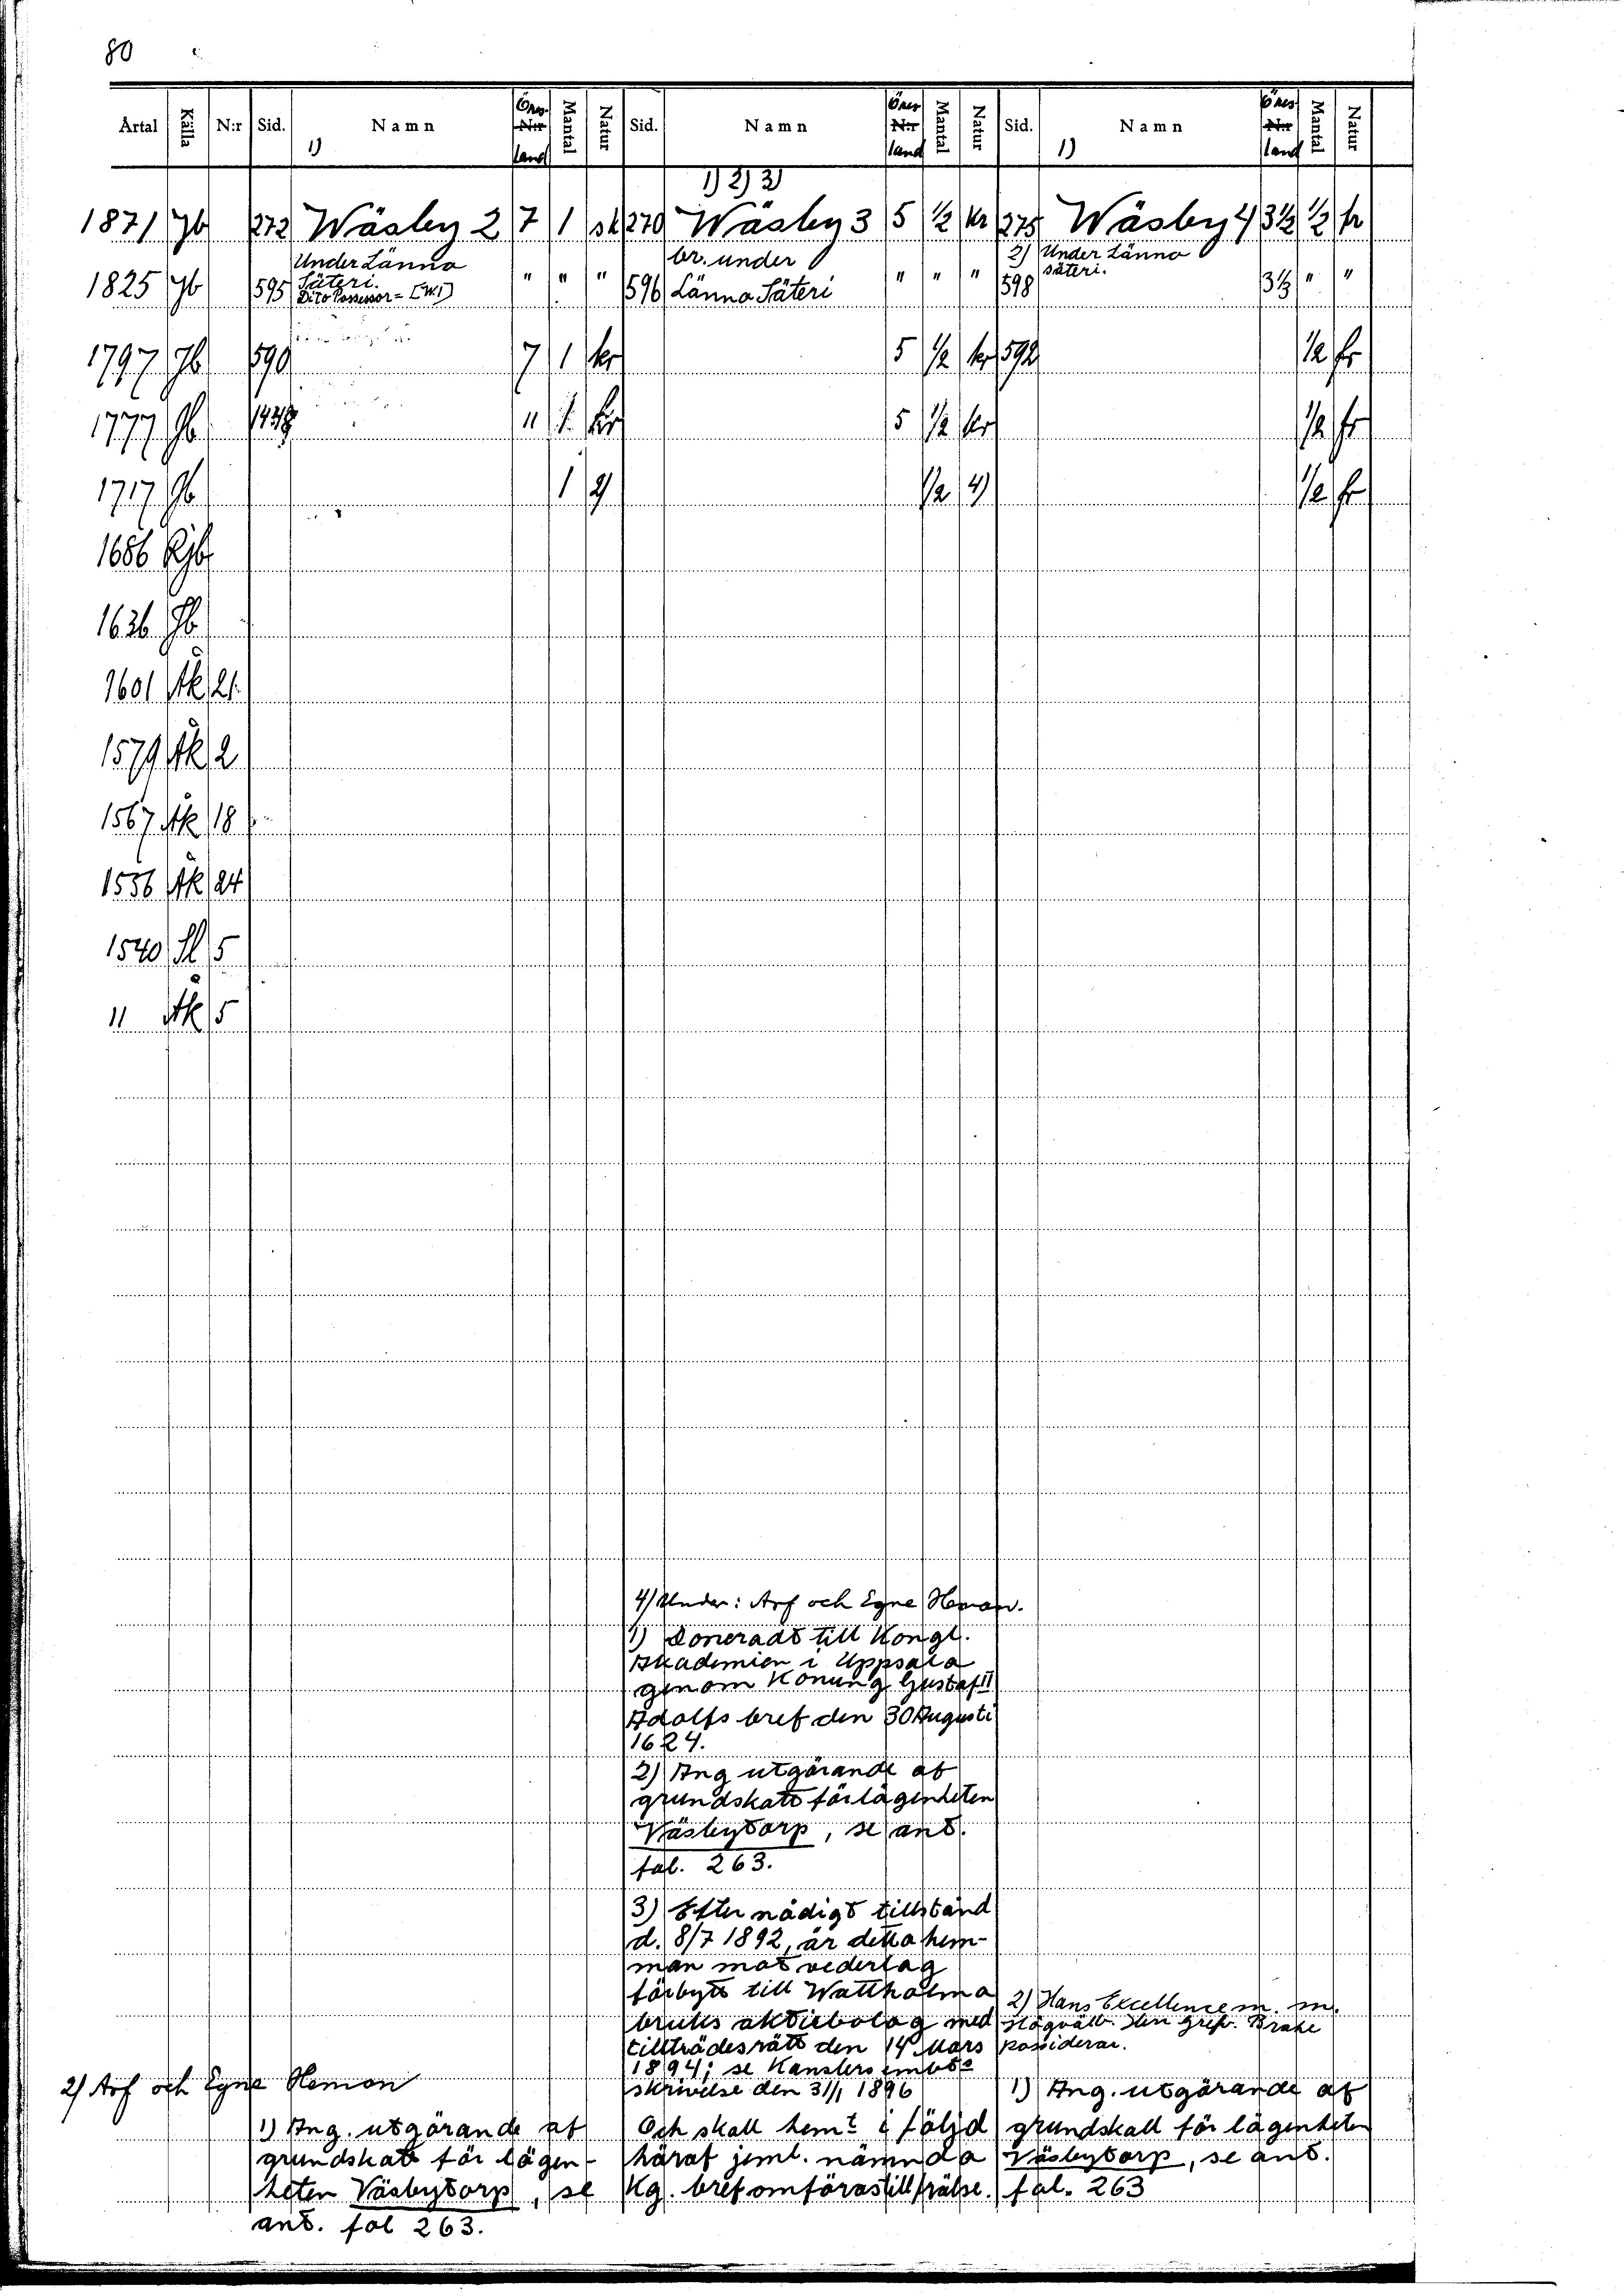 80
Årtal Källa N:r Sid. Namn 1) Öres N:r land Mantal Natur Sid. Namn Öres N:r land Mantal Natur Sid. Namn 1) Öres N:r land Mantal Natur
1) 2) 3)
1871 Jb 272 Wäsby 2 7 1 sk 270 Wäsby 3 5 1/2 kr 275 Wäsby 4 3 1/2 1/2 fr
Under Länna br. under 2) Under Länna
1825 Jb 595 Säteri. " " " 596 Länna Säteri " " " 598 säteri. 3 1/2 " "
Dito Possessor = [W.1]
1797 Jb 590 7 1 kr 5 1/2 kr 592 1/2 fr
1777 Jb 1438 " 1 kr 5 1/2 kr 1/2 fr
1717 Jb 1 2) 1/2 4) 1/2 fr
1686 Rjb
1636 Jb
1601 Åk 21
1579 Åk 2
1567 Åk 18
1556 Åk 24
1540 Sl 5
" Åk 5
4) Under: Arf och Egne Heman.
1) Doneradt till Kongl.
Akademien i Uppsala
genom Konung Gustaf II
Adolfs bref den 30 Augusti
1624.
2) Ang utgörande af
grundskatt för lägenheten
Väsbytorp, se ant.
fol. 263.
3) Efter nådigt tillstånd
d. 8/7 1892, är detta hem-
man mot vederlag
förbytt till Wattholma
bruks aktiebolag med
tillträdesrätt den 14 Mars
1894; se Kanslersembts
skrivelse den 31/1 1896
Och skall hemt i följd
häraf jeml. nämnda
Kg. bref omföras till frälse.
2) Hans Excellence m. m.
Högvälb. Herr Gref. Brahe
possiderar.
1) Ang. utgörande af
grundskatt för lägenheten
Väsbytorp, se ant.
fol. 263
2) Arf och Egne Heman
1) Ang. utgörande af
grundskatt för lägen-
heten Väsbytorp, se
ant. fol 263.